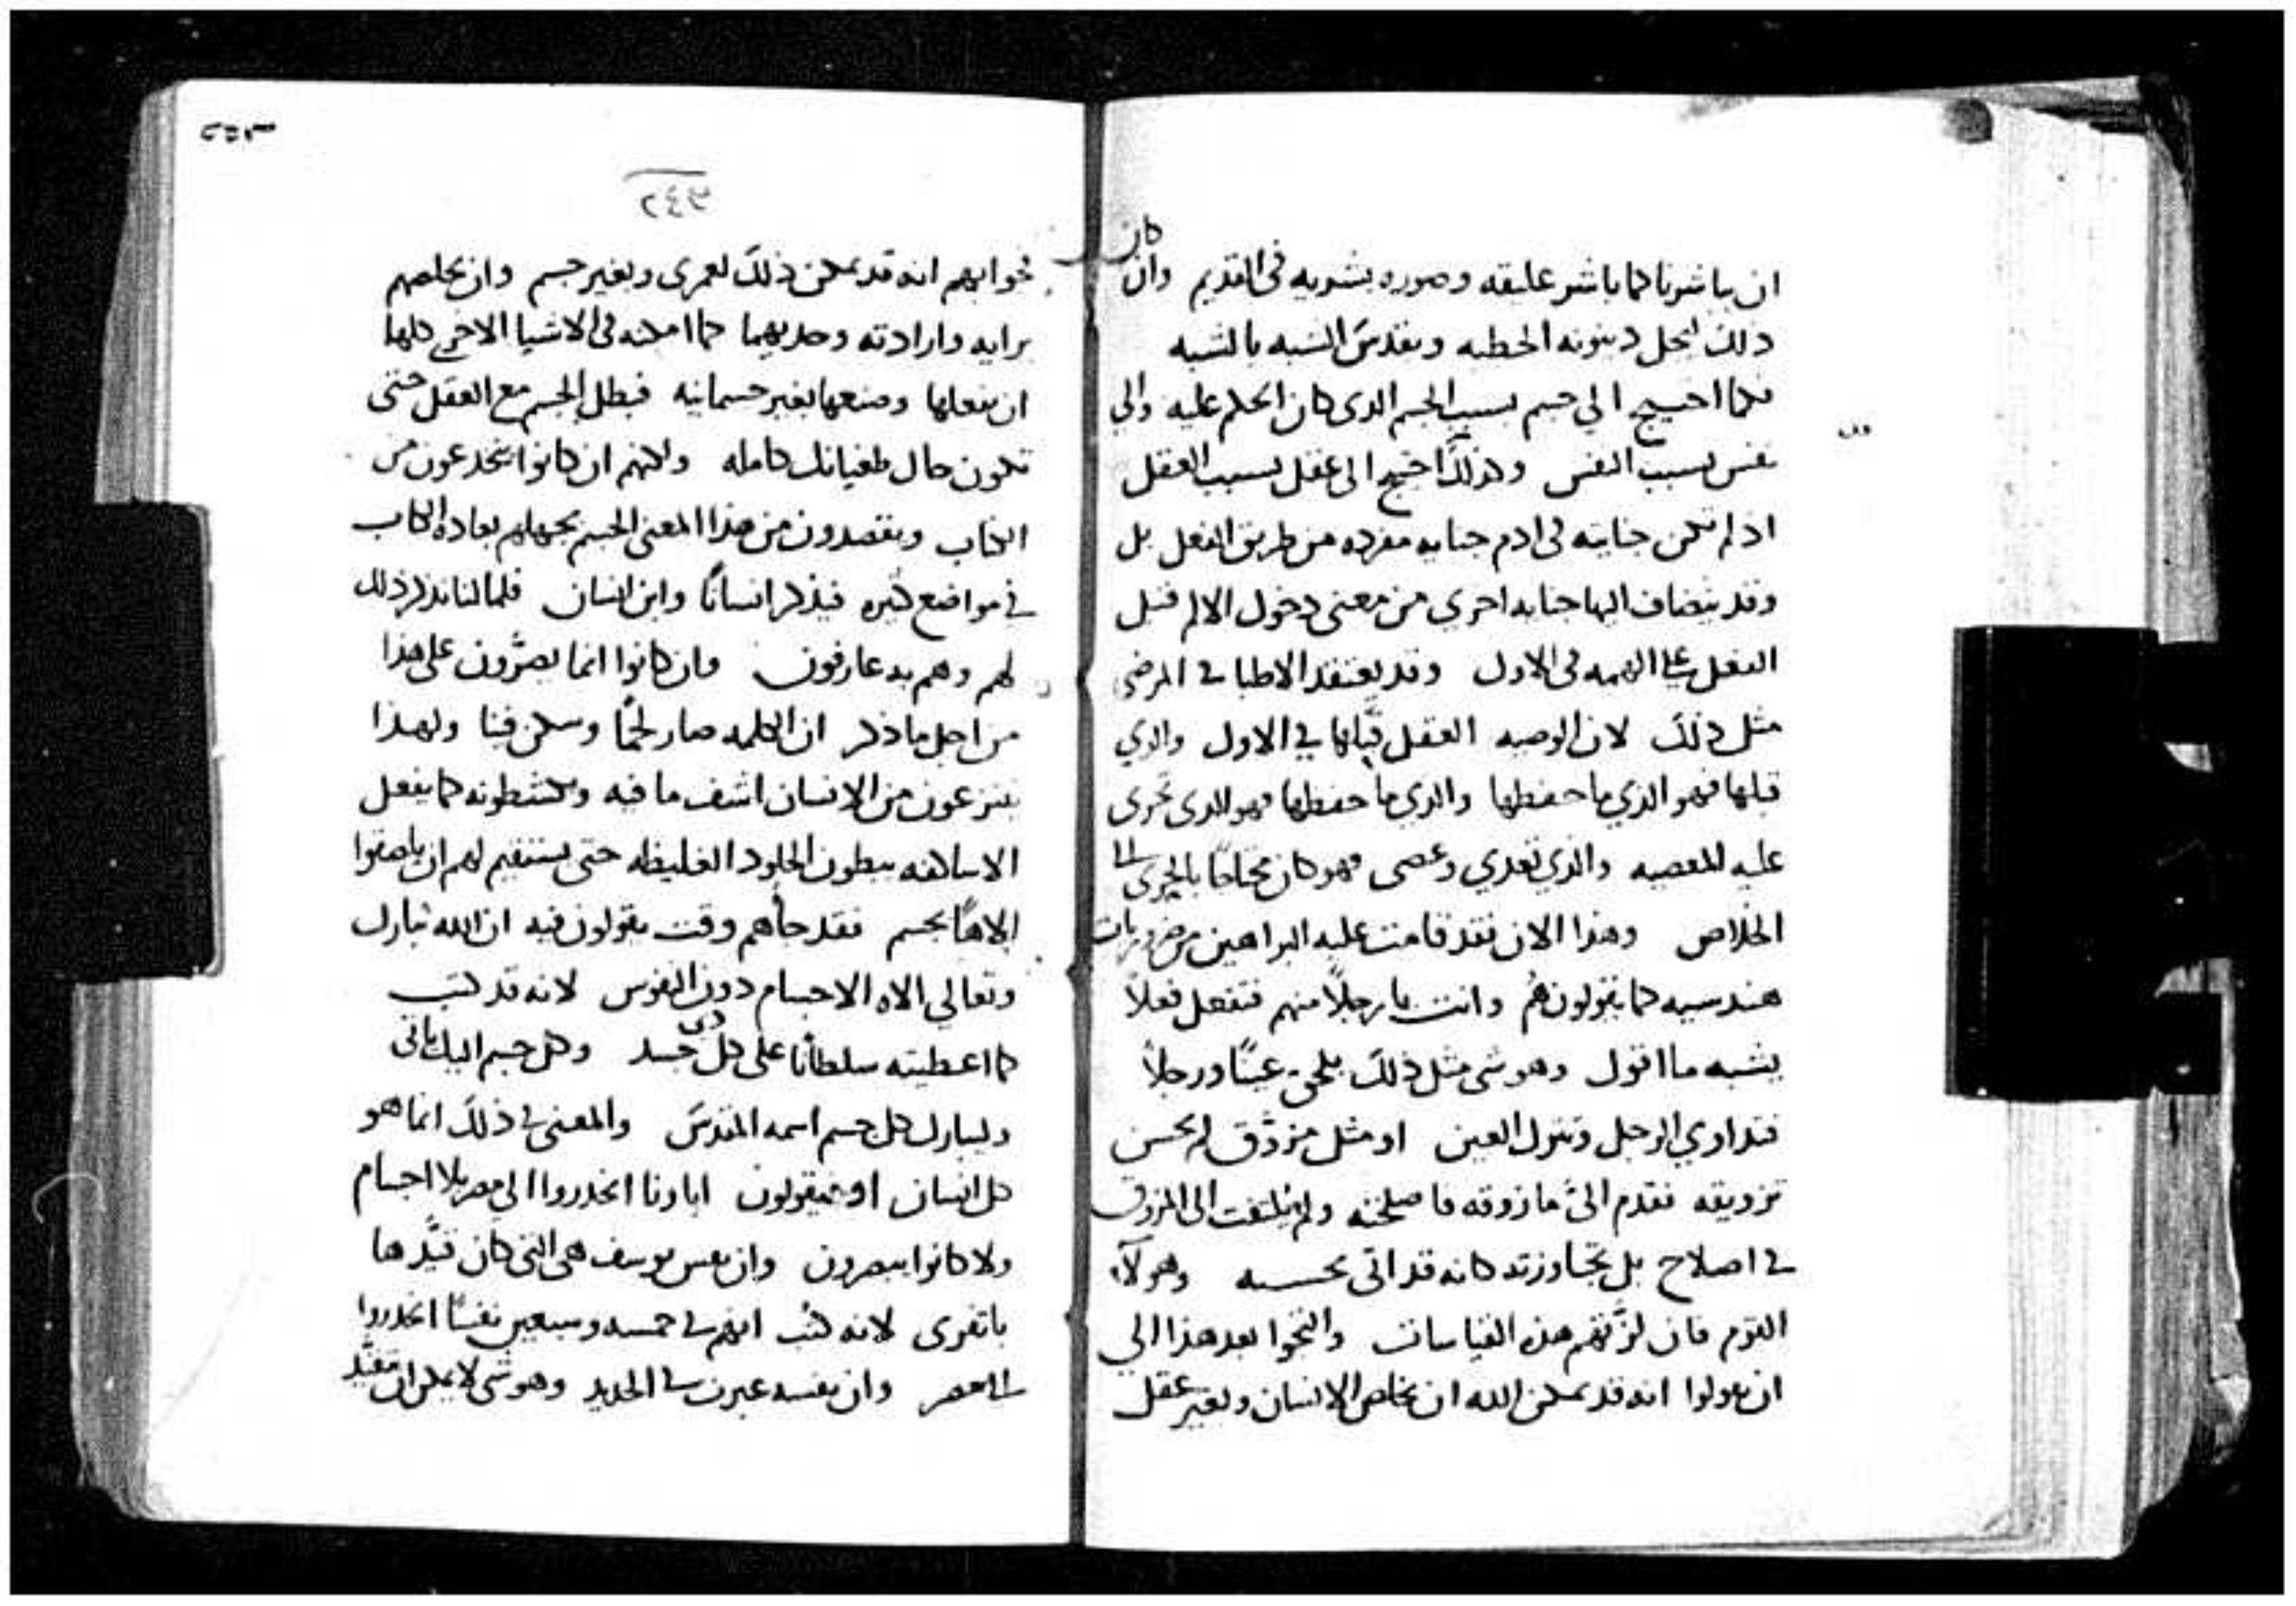 كان
ان يباشرنا كما باشر عليقه وصوره بشريه في القديم وان
ذلك لتحل دينونه الخطيه ويقدس الشبه بالشبه
فكما احتيج الي جسم بسبب الجسم الدى كان الحكم عليه والي
نفس بسبب النفس وكذلك احتيج الى عقل بسبب العقل
اذ لم تكن جنايته في ادم جنايه مفرده من طريق الفعل بل
وقد ينضاف اليها جنايه اخري من معنى دخول الالم قبل
العقل علي الهمه في الاول وقد يعتقد الاطبا في المرضي
مثل ذلك لان الوصيه العقل قبلها في الاول والذي
قبلها فهو الذي ما حفظها والذي ما حفظها فهو الدى تجرى
عليه المعصيه والذي تعدي وعصى فهو كان محتاجا بالحري الى
الخلاص وهذا الان فقد قامت عليه البراهين من ضروريات
هندسيه كما يقولون هم وانت يا رجلاً منهم فتفعل فعلاً
يشبه ما اقول وهو شي مثل ذلك عينًا ورجلاً
فتداوي الرجل وتترك العين او مثل مزوّق لم يحسن
تزويقه فتقدم الىّ ما زوقه فاصلحته ولم يلتفت الى المزوق
في اصلاح بل تجاوزته كانه قد اتى بحسبه وهولآء
القوم فان لزّتهم هذه القياسات والتجوا بعد هذا الي
ان يقولوا انه قد يمكن الله ان يخلص الانسان وبغير عقل
٢٥٣
٢٤٣
فجوابهم انه قد يمكن ذلك لعمرى وبغير جسم وان يخلصهم
برايه وارادته وحديهما كما امكنه في الاشيا الاخر كلها
ان يفعلها وصنعها بغير جسمانيه فبطل الجسم مع العقل حتى
تكون حال طغيانك كامله ولكنهم ان كانوا ينخدعون من
الكتاب ويقصدون من هذا المعنى الجسم بجهلهم بعاده الكتاب
في مواضع كثيره فيذكر انسانًا وابن انسان فلما لنا نذكر ذلك
لهم وهم به عارفون وان كانوا انما يصرّون على هذا
من اجل ما ذكر ان الكلمه صار لحمًا وسكن فينا ولهذا
ينزعون من الانسان اشف ما فيه ويكشطونه كما يفعل
الاساكفه ببطون الجلود الغليظه حتى يستقيم لهم ان يلصقوا
الاهًا بجسم فقد جأهم وقت يقولون فيه ان الله تبارك
وتعالي الاه الاجسام دون النفوس لانه قد كتب
كما اعطيته سلطانًا على كل ذي جسد وكل جسم اليك ياتى
وليبارك كل جسم اسمه المقدس والمعنى في ذلك انما هو
كل انسان او فيقولون ابا ونا انحدروا الي مصر بلا اجسام
ولا كانوا يبصرون وان نفس يوسف هى التي كان قيّدها
باتفرى لانه كتب انهم في خمسه وسبعين نفسًا انحدروا
الى مصر وان نفسه عبرت في الحديد وهو شى لا يمكن ان تقيّد